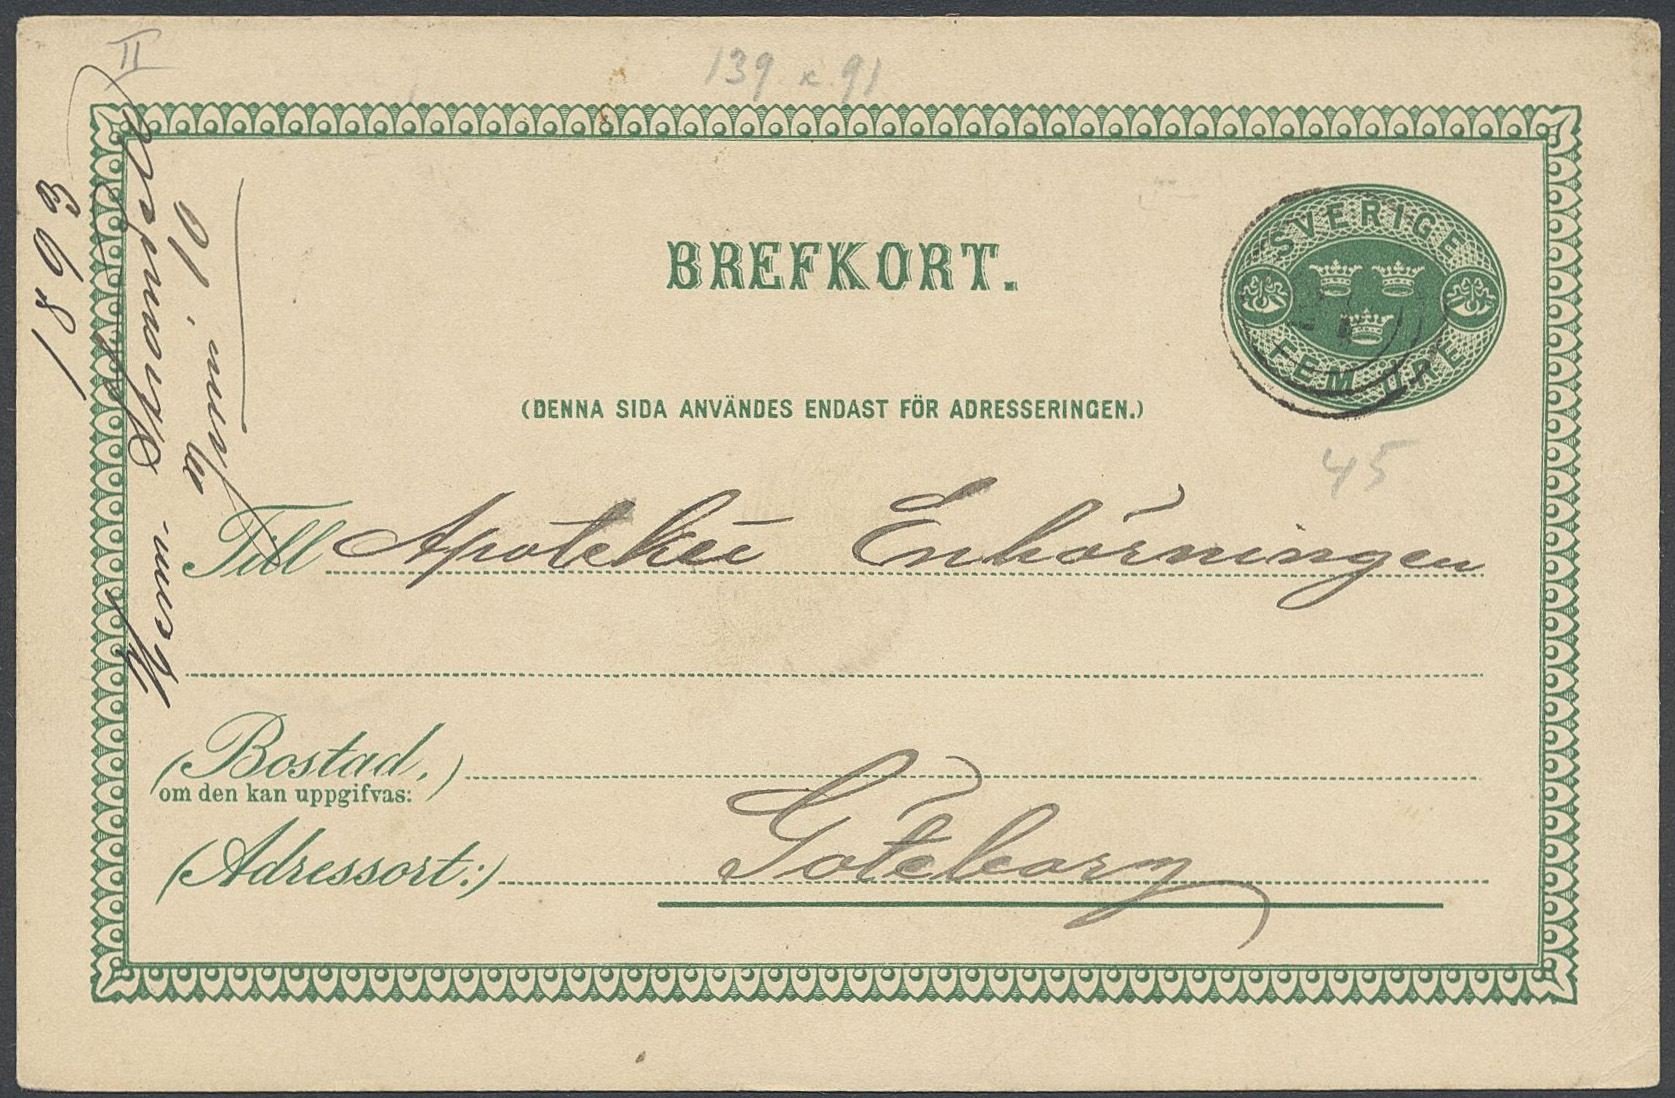 II
139 x 91
BREFKORT.
SVERIGE
FEM ÖRE
(DENNA SIDA ANVÄNDES ENDAST FÖR ADRESSERINGEN.)
45
Till Apoteket Enhörningen
(Bostad,)
om den kan uppgifvas:
(Adressort:) Göteborg
1893
10